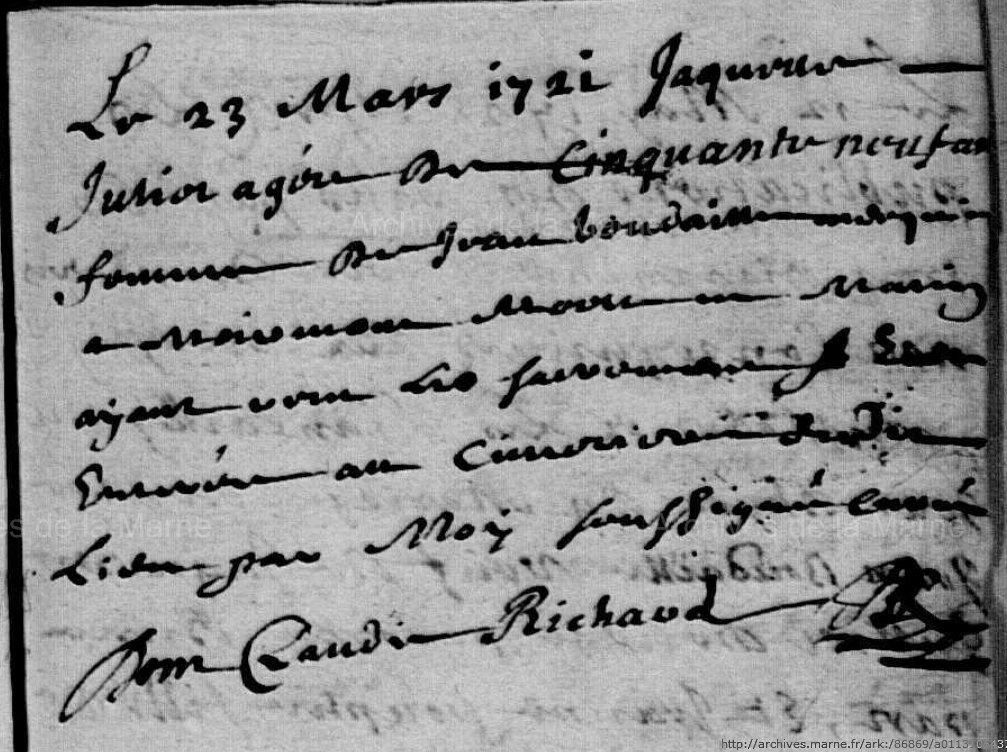 Le 23 Mars 1721 Jaquette
Jutiot agée De Cinquante neuf an
femme De Jean boudaille
a Noirmont Morte en
ayant receu Les sacremens Et
Enterrée au Cimetiere Dudit
Lieu par Moy soussigné Curé
Dom Claude Richard
Archives de la
es de la Marne
http://archives.marne.fr/ark:/86869/a0113